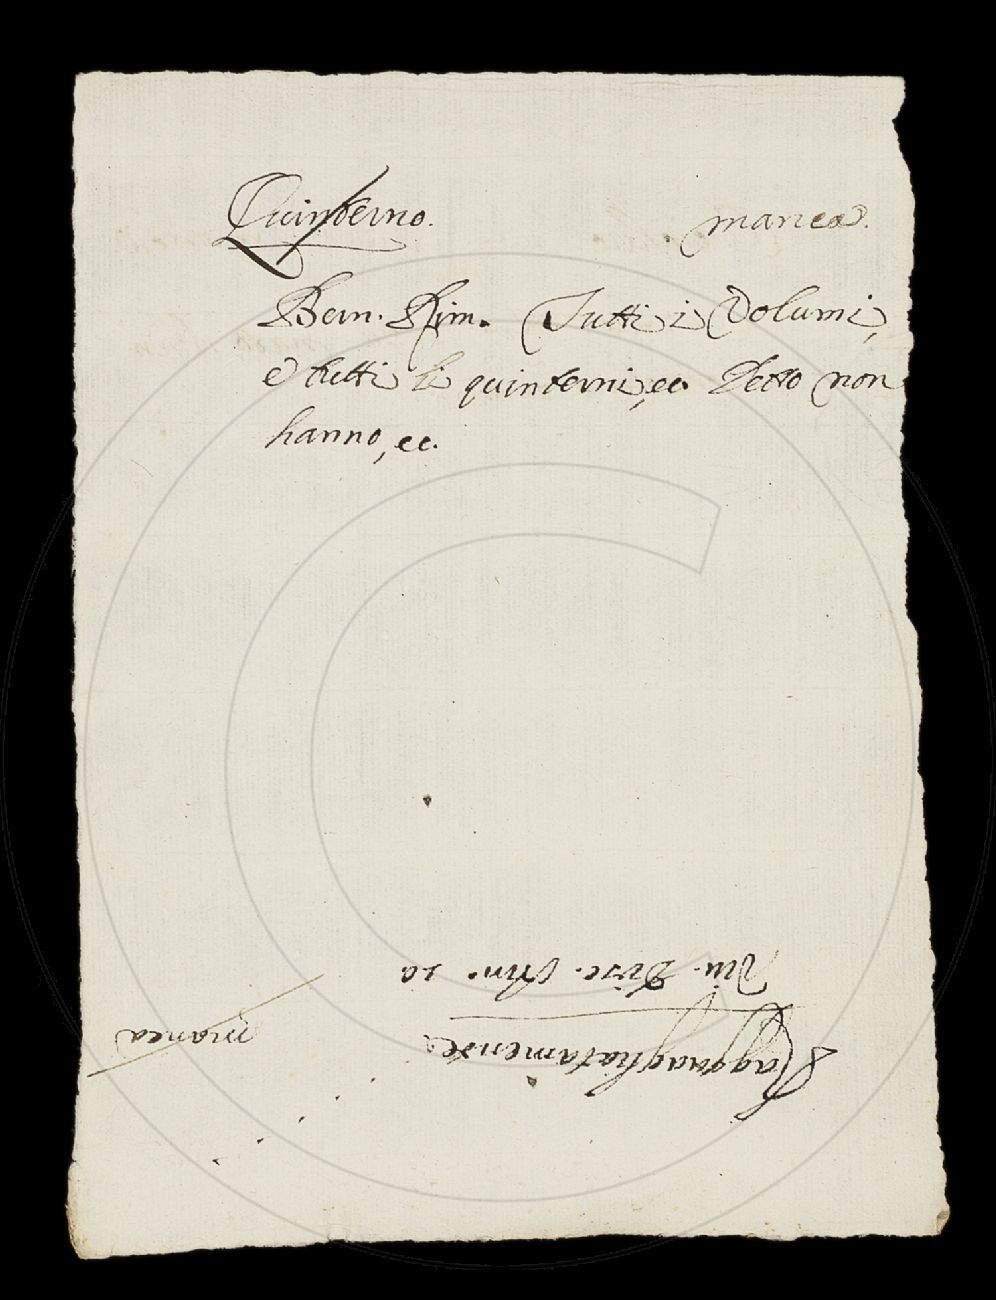 Quinterno. manca.
Bern. Rim. Tutti i Volumi,
e tutti li quinterni, ec. Detto non
hanno, ec.
Ragguagliatamente
manca
Viv. Disc. Arn. 10